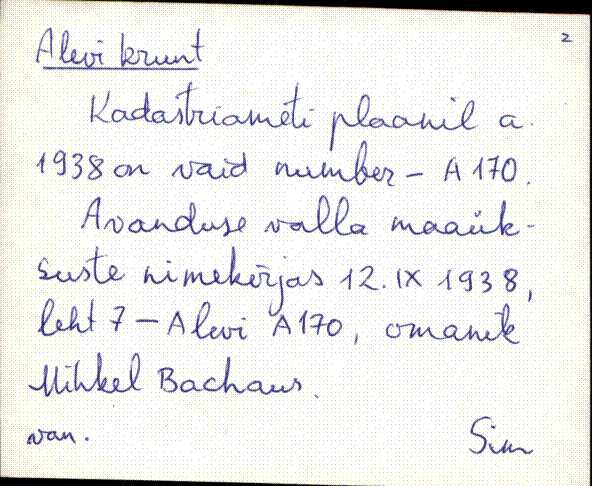 2
Alevi krunt
Kadastriameti plaanil a.
1938 on vaid number - A 170.
Avanduse valla maaük-
suste nimekirjas 12. IX 1938,
leht 7 - Alevi A170, omanik
Mihkel Bachaus.
van. Sim